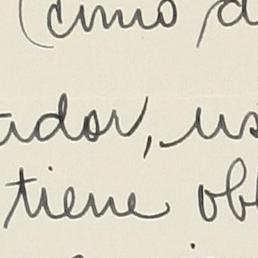 (como d
ador, us
tiene ob